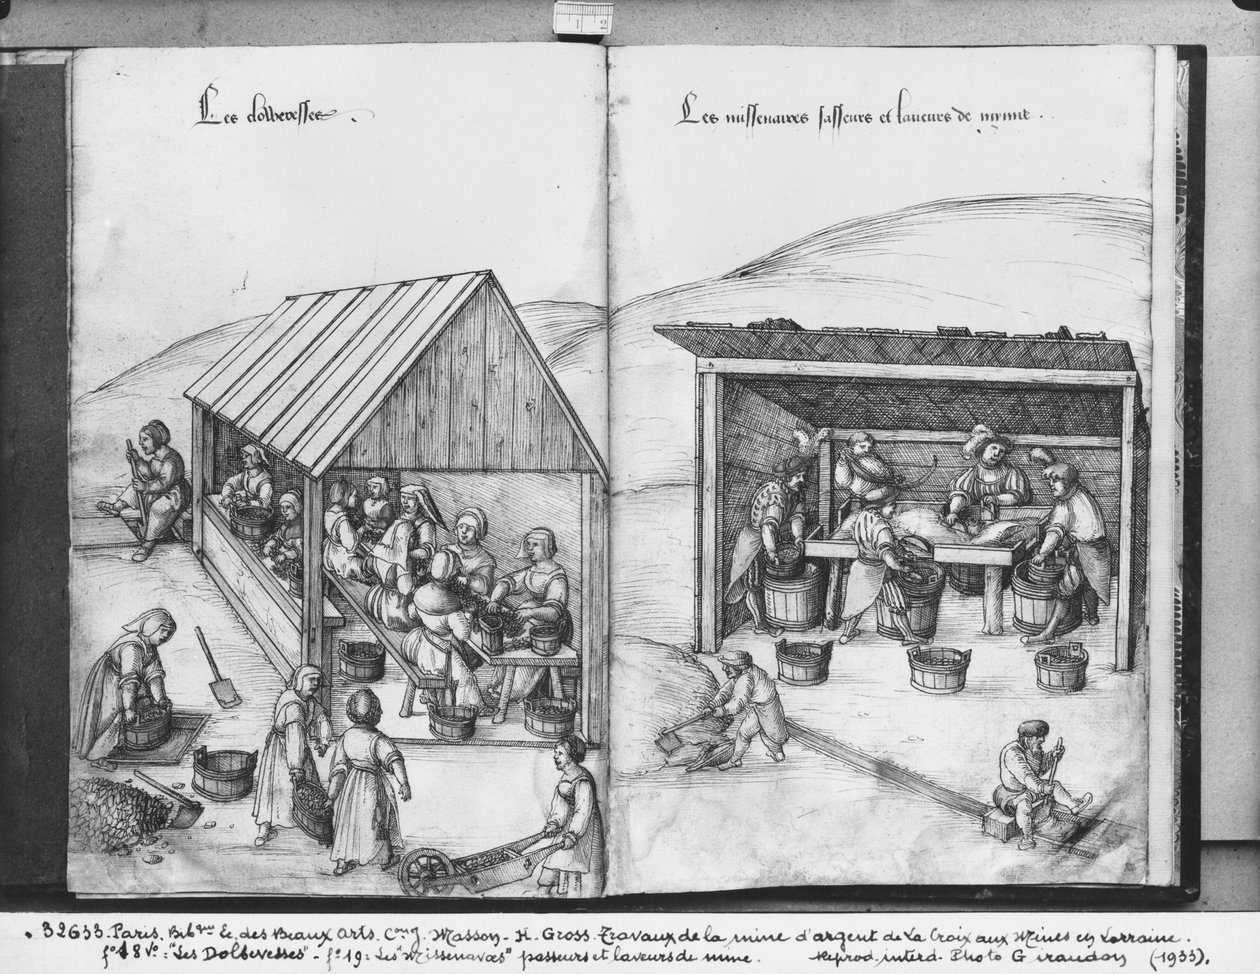 1 2
Les dolberesses .
Les missenaires sasseurs et laveurs de mynne .
. 32633. Paris. Bibque Ec. des Beaux Arts. Cong. Masson - H. Gross. Travaux de la mine d'argent de La Croix aux Mines en Lorraine.
fo 18 vo: "Les Dolbevesses" - fo 19: Les "Missenaves" passeurs et laveurs de mine. Reprod. interd. Photo Giraudon (1933).